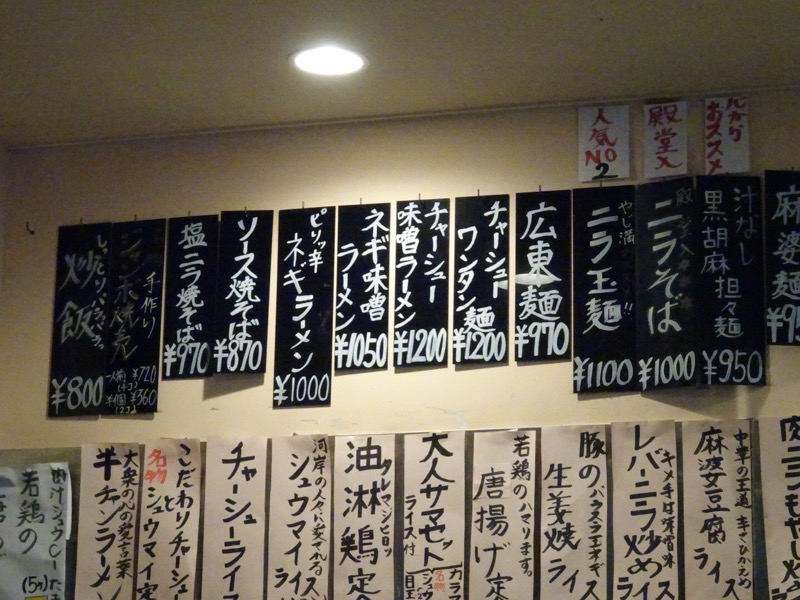 人気
NO
2
殿堂入
おススメ
しっとりパラパラ。
炒飯
¥800
手作り
ジャンボ焼売
一人前 ¥720
(4コ)
半個 ¥360
(2コ)
塩ニラ焼そば
¥970
ソース焼そば
¥870
ピリッ辛
ネギラーメン
¥1000
ネギ味噌
ラーメン
¥1050
チャーシュー
味噌ラーメン
¥1200
チャーシュー
ワンタン麺
¥1200
広東麺
¥970
やじ満
ニラ玉麺
¥1100
ニラそば
¥1000
汁なし
黒胡麻担々麺
¥950
麻婆麺
肉汁ジュウシーた
若鶏の
(5ヶ)
大衆の心の愛言葉
半チャンラーメン
名物
こだわりチャーシュー
と
シュウマイ定
チャーシューライス
河岸の人々に愛される
シュウマイライ
タレマシヒロッ
油淋鶏定
大人サマセット
ライス付
カラマ
名物
シュウ
目玉
若鶏のハマります。
唐揚げ定
豚のバラスライスネギ
生姜焼
ライス
レバ・ニラ炒め
キメ手は味噌味
ライ
中華の王道 辛さひかえめ
麻婆豆腐
ライス
肉ニラもやし炒
ライ